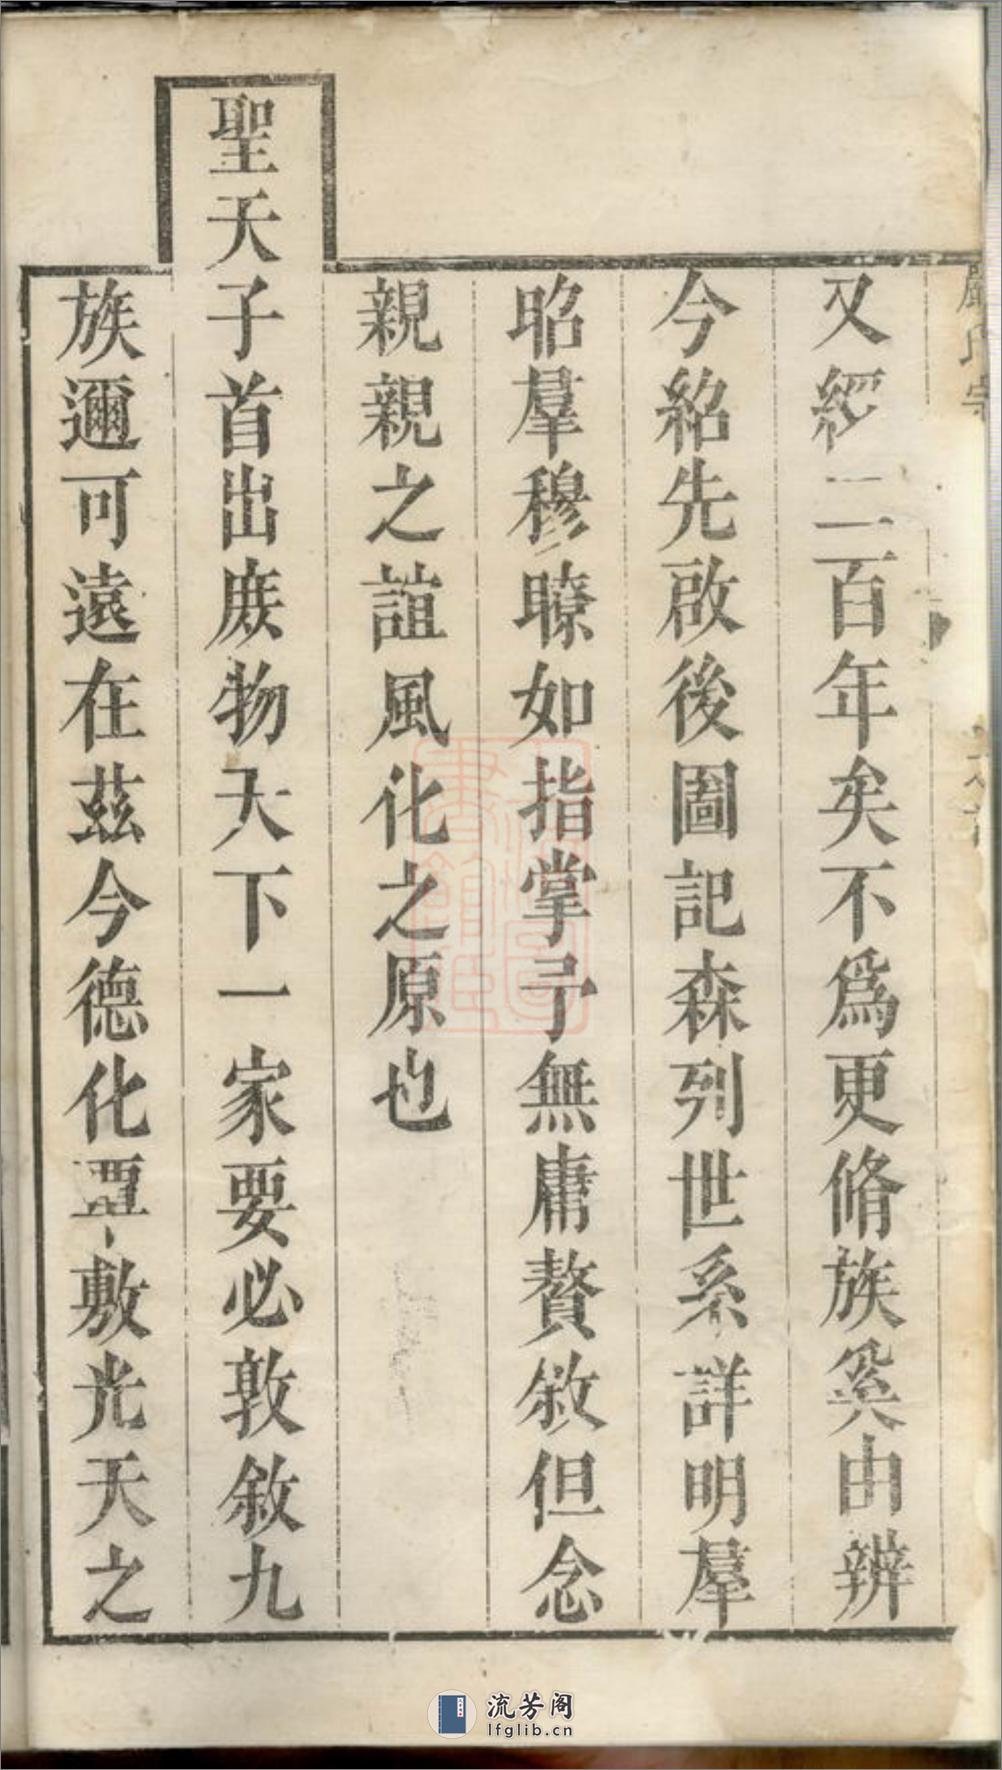 又經二百年矣不爲更脩族奚由辨
今紹先啟後圖記森列世系詳明羣
昭羣穆瞭如指掌予無庸贅敘但念
親親之誼風化之原也
聖天子首出庻物天下一家要必敦敘九
族邇可遠在茲今德化覃敷光天之
流芳阁
lfglib.cn